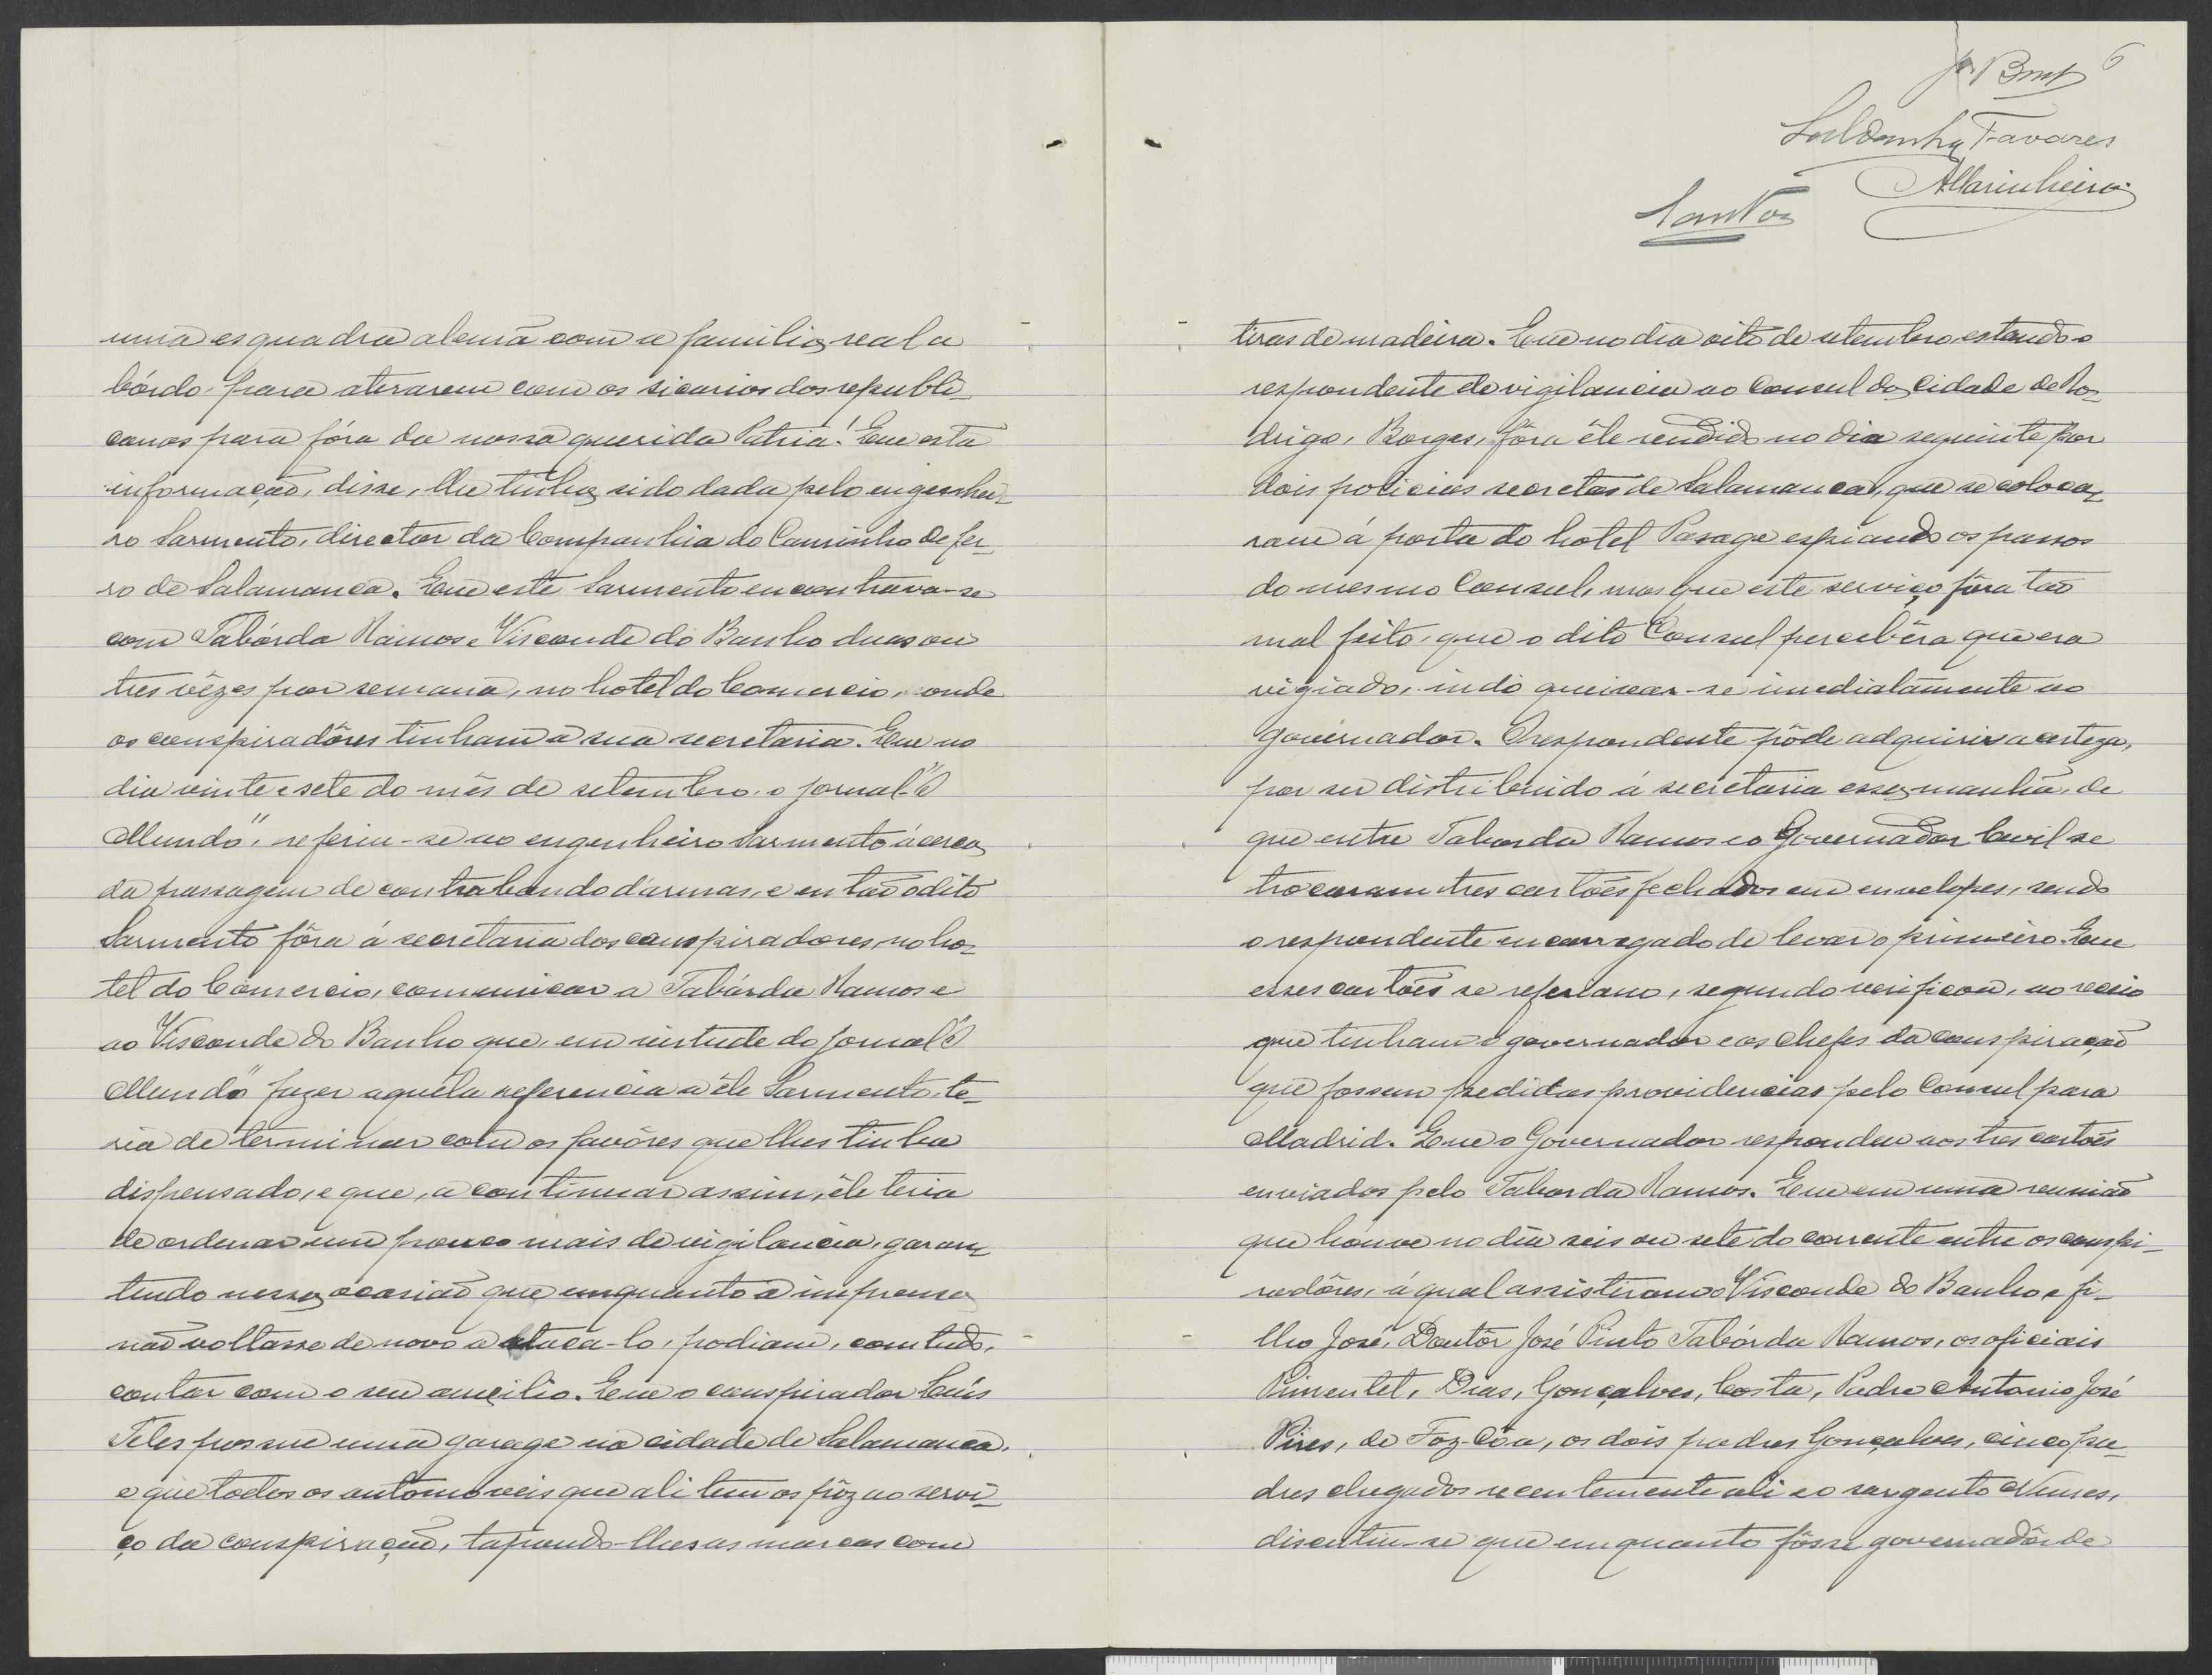 uma esquadra alemã com a familia real a
bórdo, para atirarem com os sicarios dos republi-
canos para fóra da nossa querida Patria! Que esta
informação, disse, lhe tinha sido dada pelo engenhei-
ro Sarmento, director da Companhia do Caminho de fer-
ro de Salamanca. Que este Sarmento encontrava-se
com Tabórda Ramos e Visconde do Banho duas ou
tres vêzes por semana, no hotel do Comercio, onde
os conspiradôres tinham a sua secretaria. Que no
dia vinte e sete do mês de setembro, o jornal "O
Mundo", referiu-se ao engenheiro Sarmento ácerca
da passagem de contrabando d'armas, e então o dito
Sarmento fôra á secretaria dos conspiradores, no ho-
tel do Comercio, comunicar a Tabórda Ramos e
ao Visconde do Banho que, em virtude do jornal "O
Mundo" fazer aquela referencia a êle Sarmento, te-
ria de terminar com os favôres que lhes tinha
dispensado, e que, a continuar assim, êle teria
de ordenar um pouco mais de vigilancia, garan-
tindo nessa ocasião que emquanto a imprensa
não voltasse de novo a ataca-lo, podiam, comtudo,
contar com o seu aucilio. Que o conspirador Luís
Teles possue uma garage na cidade de Salamanca,
e que todos os automoveis que ali tem os pôz ao servi-
ço da conspiração, tapando-lhes as marcas com
6
Saldanha Tavares
AMarinheiro
Santos
tiras de madeira. Que no dia oito de setembro, estando o
respondente de vigilancia ao Consul da Cidade de Ro-
drigo, Borges, fôra êle rendido no dia seguinte por
dois policias secretas de Salamanca, que se coloca-
ram á porta do hotel Pasage espiando os passos
do mesmo Consul, mas que este serviço fôra tão
mal feito, que o dito Consul percebêra que era
vigiado, indo queixar-se imediatamente ao
governador. O respondente pôde adquirir a certeza,
por ser distribuido á secretaria essa manhã, de
que entre Taborda Ramos e o Governador Civil se
trocaram tres cartões fechados em envelopes, sendo
o respondente encarregado de levar o primeiro. Que
esses cartões se referiam, segundo verificou, ao receio
que tinham o governador e os chefes da conspiração
que fossem pedidas providencias pelo Consul para
Madrid. Que o Governador respondeu aos tres cartões
enviados pelo Taborda Ramos. Que em uma reunião
que houve no dia seis ou sete do corrente entre os conspi-
radôres, á qual assistiram o Visconde do Banho e fi-
lho José, Doutôr José Pinto Tabórda Ramos, os oficiais
Pimentel, Dias, Gonçalves, Costa, Padre Antonio José
Pires, de Foz-Côa, os dois padres Gonçalves, cinco pa-
dres chegados recentemente ali e o sargento Nunes,
discutiu-se que emquanto fôsse governadôr de